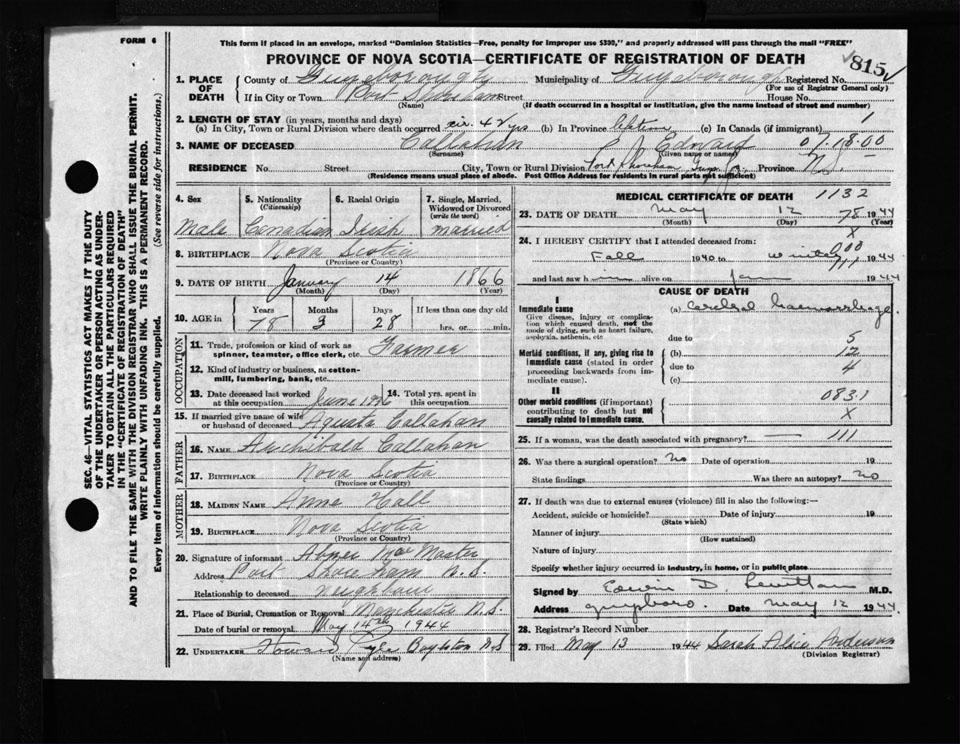 FORM 6
This form if placed in an envelope, marked "Dominion Statistics—Free, penalty for improper use $300," and properly addressed will pass through the mail "FREE"
PROVINCE OF NOVA SCOTIA—CERTIFICATE OF REGISTRATION OF DEATH
1. PLACE OF DEATH
County of Guysborough Municipality of Guysborough Registered No. 815
(For use of Registrar General only)
If in City or Town Port Shoreham Street House No.
(Name) (If death occurred in a hospital or institution, give the name instead of street and number)
2. LENGTH OF STAY (in years, months and days)
(a) In City, Town or Rural Division where death occurred 42 yrs (b) In Province lifetime (c) In Canada (if immigrant) 1
3. NAME OF DECEASED Callahan Edward 07.18.00
(Surname) (Given name or names)
RESIDENCE No. Street City, Town or Rural Division Port Shoreham Guys. Co. Province N.S.
(Residence means usual place of abode. Post Office Address for residents in rural parts not sufficient)
4. Sex 5. Nationality (Citizenship) 6. Racial Origin 7. Single, Married, Widowed or Divorced (write the word)
Male Canadian Irish married
8. BIRTHPLACE Nova Scotia
(Province or Country)
9. DATE OF BIRTH January 14 1866
(Month) (Day) (Year)
10. AGE in Years Months Days If less than one day old
78 3 28 hrs. or min.
OCCUPATION
11. Trade, profession or kind of work as spinner, teamster, office clerk, etc. Farmer
12. Kind of industry or business, as cotton-mill, lumbering, bank, etc.
13. Date deceased last worked at this occupation June 14. Total yrs. spent in this occupation
15. If married give name of wife or husband of deceased Agusta Callahan
FATHER
16. NAME Archibald Callahan
17. BIRTHPLACE Nova Scotia
(Province or Country)
MOTHER
18. MAIDEN NAME Anne Hall
19. BIRTHPLACE Nova Scotia
(Province or Country)
20. Signature of informant Abner MacMaster
Address Port Shoreham N.S.
Relationship to deceased Neighbour
21. Place of Burial, Cremation or Removal Manchester N.S.
Date of burial or removal May 14th 1944
22. UNDERTAKER Howard Pyle Boylston N.S.
(Name and address)
MEDICAL CERTIFICATE OF DEATH 1132
23. DATE OF DEATH May 12 78 1944
(Month) (Day) (Year)
X
24. I HEREBY CERTIFY that I attended deceased from:
Fall 1940 to winter 1944
and last saw him alive on Jan 1944
CAUSE OF DEATH
I
Immediate cause
Give disease, injury or complication which caused death, not the mode of dying, such as heart failure, asphyxia, asthenia, etc
(a) cerebral haemorrhage
due to 5
Morbid conditions, if any, giving rise to immediate cause (stated in order proceeding backwards from immediate cause).
(b) 12
due to 4
(c)
II
Other morbid conditions (if important) contributing to death but not causally related to immediate cause.
0831
X
25. If a woman, was the death associated with pregnancy? — 111
26. Was there a surgical operation? No Date of operation 19
State findings Was there an autopsy? No
27. If death was due to external causes (violence) fill in also the following:—
Accident, suicide or homicide? Date of injury 19
(State which)
Manner of injury
(How sustained)
Nature of injury
Specify whether injury occurred in industry, in home, or in public place
Signed by Edwin D. M.D.
Address Guysboro. Date May 12 1944.
28. Registrar's Record Number
29. Filed May 13 1944 Sarah Alice Anderson
(Division Registrar)
SEC. 46—VITAL STATISTICS ACT MAKES IT THE DUTY
OF THE UNDERTAKER OR PERSON ACTING AS UNDER-
TAKER TO OBTAIN ALL THE PARTICULARS REQUIRED
IN THE "CERTIFICATE OF REGISTRATION OF DEATH"
AND TO FILE THE SAME WITH THE DIVISION REGISTRAR WHO SHALL ISSUE THE BURIAL PERMIT.
WRITE PLAINLY WITH UNFADING INK. THIS IS A PERMANENT RECORD.
Every item of information should be carefully supplied. (See reverse side for instructions.)